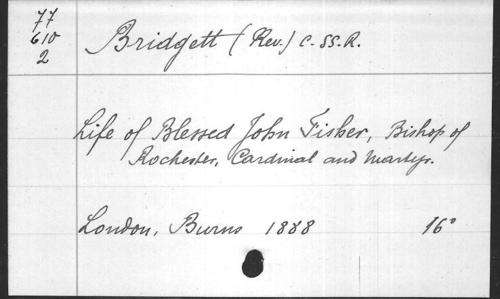 77
610
2
Bridgett (Rev.) C. SS. R.
Life of Blessed John Fisher, Bishop of
Rochester, Cardinal and Martyr.
London, Burns 1888 16°